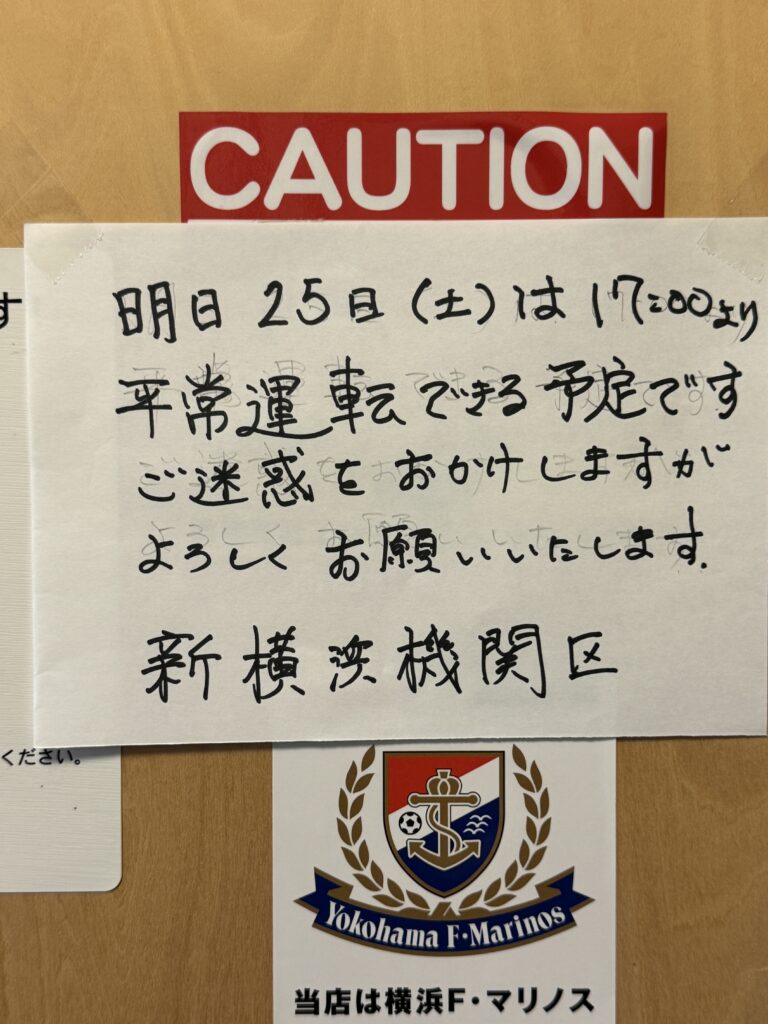 CAUTION
す
明日 25日(土)は 17:00より
平常運転できる予定です
ご迷惑をおかけしますが
よろしくお願いいたします.
新横浜機関区
ください。
Yokohama F・Marinos
当店は横浜F・マリノス